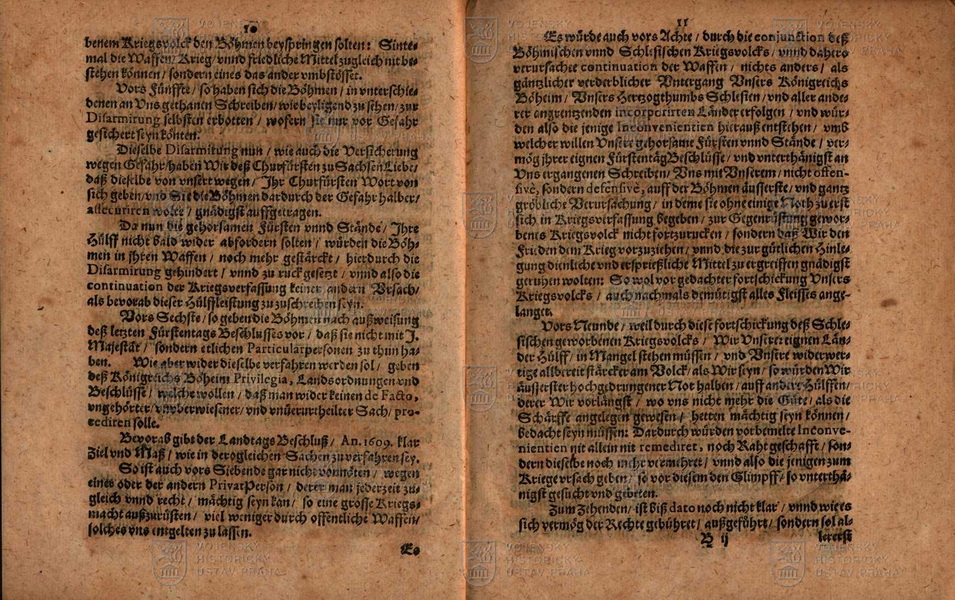 10
benem Kriegsvolck den Böhmen beyspringen solten: Sinte-
mal die Waffen/ Krieg/ vnnd friedliche Mittel zugleich nit be-
stehen können/ sondern eines das ander vmbstösset.
Vors Fünffte/ so haben sich die Böhmen/ in vnterschie-
denen an Vns gethanen Schreiben/ wie beyligend zu sehen/ zur
Disarmirung selbsten erbotten/ wofern sie nur vor Gefahr
gesichert seyn könten.
Dieselbe Disarmirung nun/ wie auch die Versicherung
wegen Gefahr/ haben Wir deß Churfürsten zu Sachsen Liebe/
daß dieselbe von vnsert wegen/ Ihr Churfürsten Wort von
sich geben/ vnd Sie die Böhmen dardurch der Gefahr halber/
gnädigst auffgetragen.
Da nun die gehorsamen Fürsten vnnd Stände/ Ihre
Hülff nicht bald wider abfordern solten/ würden die Böh-
men in ihren Waffen/ noch mehr gestärckt/ hierdurch die
Disarmirung gehindert/ vnnd zu ruck gesetzt/ vnnd also die
continuation der Kriegsverfassung keiner andern Vrsach/
als bevorab dieser Hülffleistung zuzuschreiben seyn.
Vors Sechste/ so geben die Böhmen nach außweisung
deß letzten Fürstentags Beschlusses vor/ daß sie nicht mit J.
Majestät/ sondern etlichen Particularpersonen zu thun ha-
ben. Wie aber wider dieselbe verfahren werden sol/ geben
deß Königreichs Böheim Privilegia, Landsordnungen vnd
Beschlüsse/ welche wollen/ daß man wider keinen de Facto,
vngehörter/ vnüberwiesener/ vnd vnüerurtheilter Sach/ pro-
cediren solle.
Bevorab gibt der Landtags Beschluß/ An. 1609. klar
Ziel vnd Maß/ wie in derogleichen Sachen zu verfahren sey.
So ist auch vors Siebende gar nicht vonnöten/ wegen
eines oder der andern PrivatPerson/ derer man jederzeit zu-
gleich vnnd recht/ mächtig seyn kan/ so eine grosse Kriegs-
macht außzurüsten/ viel weniger durch öffentliche Waffen/
solches vns entgelten zu lassen.
Es
11
Es würde auch vors Achte/ durch die conjunction deß
Böhmischen vnnd Schlesischen Kriegsvolcks/ vnnd dahero
verursachte continuation der Waffen/ nichts anders/ als
gäntzlicher verderblicher Vntergang Vnsers Königreichs
Böheim/ Vnsers Hertzogthumbs Schlesien/ vnd aller ande-
rer angrentzenden incorporirten Länder erfolgen/ vnd wür-
den also die jenige Inconvenientien hierauß entstehen/ vmb
welcher willen Vnsere gehorsame Fürsten vnnd Stände/ ver-
mög jhrer eignen Fürstentäg Beschlüsse/ vnd vnterthänigst an
Vns ergangenen Schreiben/ Vns mit Vnserem/ nicht offen-
sivè, sondern defensivè, auff der Böhmen äusserste/ vnd gantz
gröbliche Verursachung/ in deme sie ohne einige Noth zu erst
sich in Kriegsverfassung begeben/ zur Gegenrüstung gewor-
benes Kriegsvolck nicht fortzurucken/ sondern daß Wir den
Frieden dem Krieg vorzuziehen/ vnnd die zur gütlichen Hinle-
gung dienliche vnd ersprießliche Mittel zu ergreiffen gnädigst
geruhen wolten: So wol vor gedachter fortschickung Vnsers
Kriegsvolcks/ auch nachmals demütigst alles Fleisses ange-
langet.
Vors Neunde/ weil durch diese fortschickung deß Schle-
sischen geworbenen Kriegsvolcks/ Wir Vnserer eignen Län-
der Hülff/ in Mangel stehen müssen/ vnd Vnsere widerwer-
tige allbereit stärcker am Volck/ als Wir seyn/ so würden Wir
äusserster hochgedrungener Not halben/ auff andere Hülffen/
derer Wir vorlängst/ wo vns nicht mehr die Güte/ als die
Schärffe angelegen gewesen/ hetten mächtig seyn können/
bedacht seyn müssen: Dardurch würden vorbemelte Inconve-
nientien nit allein nit remediret, noch Raht geschafft/ son-
dern dieselbe noch mehr vermehret/ vnnd also die jenigen zum
Kriege vrsach geben/ so vor diesem den Glimpff/ so vnterthä-
nigst gesucht vnd gebeten.
Zum Zehenden/ ist biß dato noch nicht klar/ vnnd wie es
sich vermög der Rechte gebühret/ außgeführt/ sondern sol al-
B ij lererst
VOJENSKÝ
HISTORICKÝ
ÚSTAV PRAHA